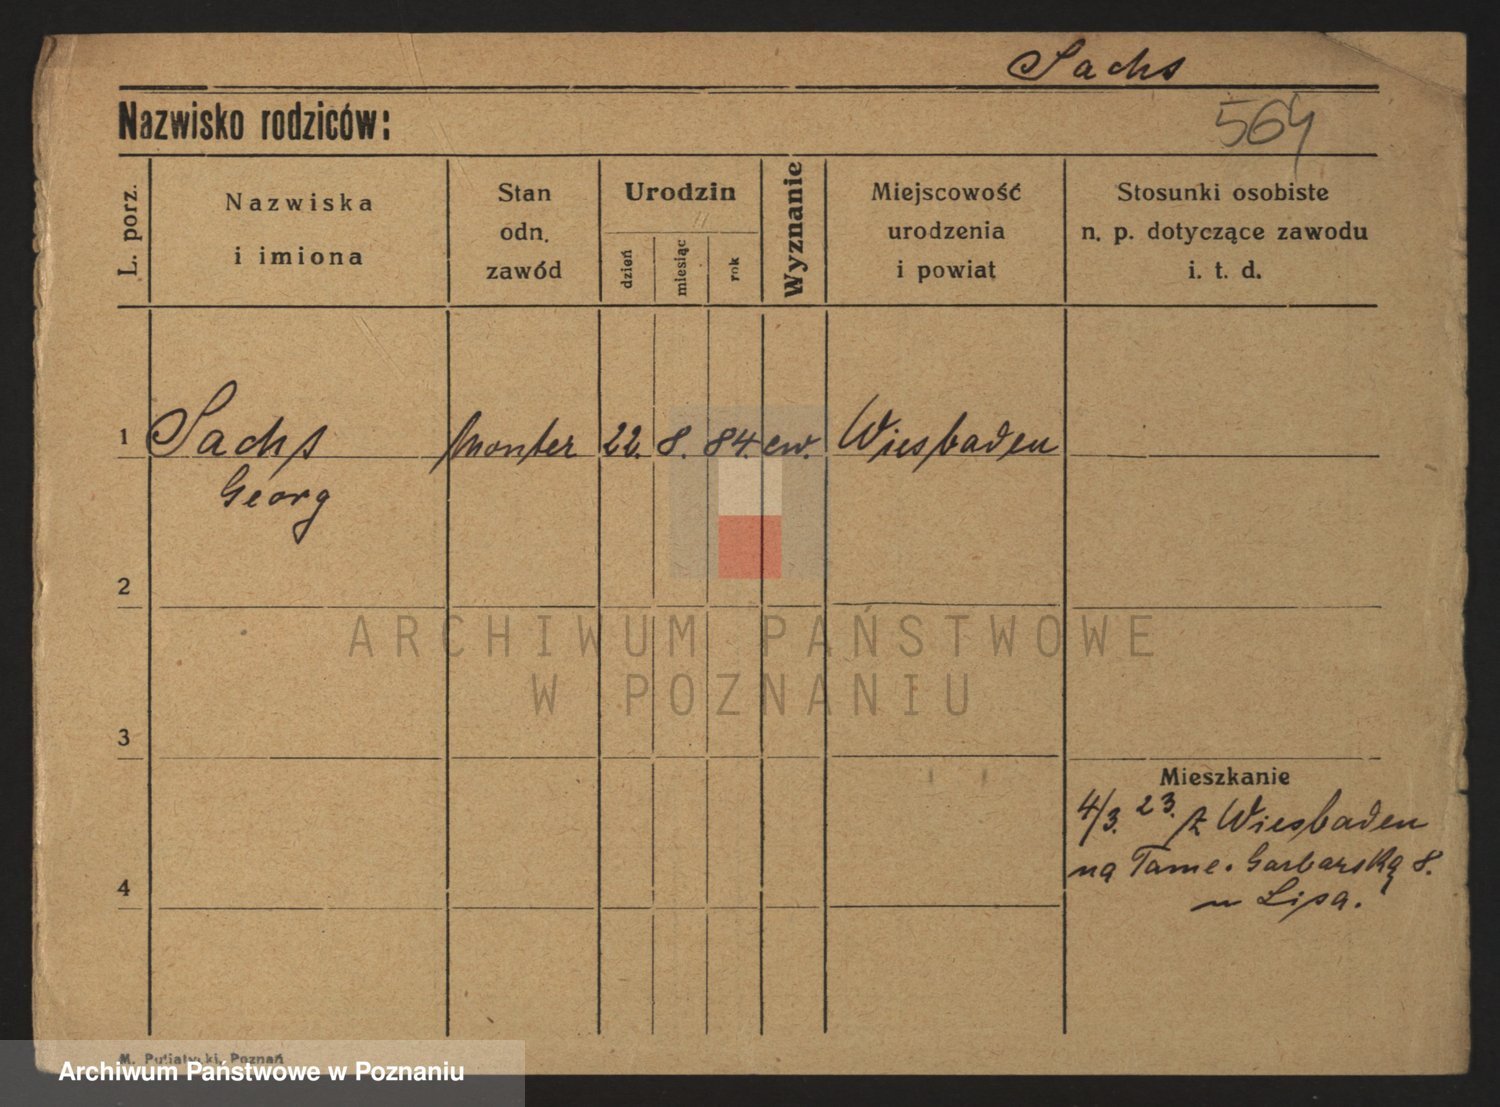 Sachs
Nazwisko rodziców:
564
L. porz.
Nazwiska
i imiona
Stan
odn.
zawód
Urodzin
dzień
miesiąc
rok
Wyznanie
Miejscowość
urodzenia
i powiat
Stosunki osobiste
n. p. dotyczące zawodu
i. t. d.
1 Sachs monter 22. 8. 84. ew. Wiesbaden
Georg
2
ARCHIWUM PAŃSTWOWE
W POZNANIU
3
Mieszkanie
4/3. 23. z Wiesbaden
na Tame. Garbarską 8.
4
u Lisa.
M. Putiatycki, Poznań
Archiwum Państwowe w Poznaniu